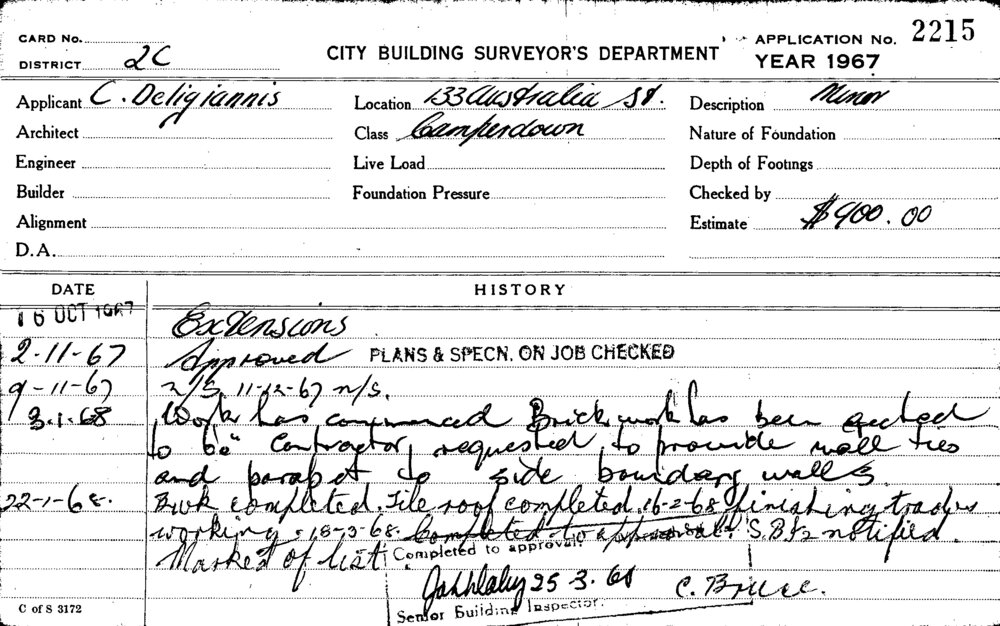 CARD No.
DISTRICT 2C
CITY BUILDING SURVEYOR'S DEPARTMENT
APPLICATION No. 2215
YEAR 1967
Applicant C. Deligiannis
Location 133 Australia St.
Description Minor
Architect
Class Camperdown
Nature of Foundation
Engineer
Live Load
Depth of Footings
Builder
Foundation Pressure
Checked by
Alignment
Estimate $900.00
D.A.
DATE HISTORY
16 OCT 1967 Extensions
2-11-67 Approved PLANS & SPECN. ON JOB CHECKED
9-11-67 n/s. 11-12-67 n/s.
3.1.68 Work has commenced Brickwork has been erected
to 6'0" Contractor requested to provide wall ties
and parapet to side boundary walls.
22-1-68. Bwk completed. Tile roof completed. 16-2-68 finishing trades
working. 18-3-68. Completed to approval. S.B.I. notified.
Marked of list.
Completed to approval
25 3. 68 C. Bruce.
Senior Building Inspector.
C of S 3172